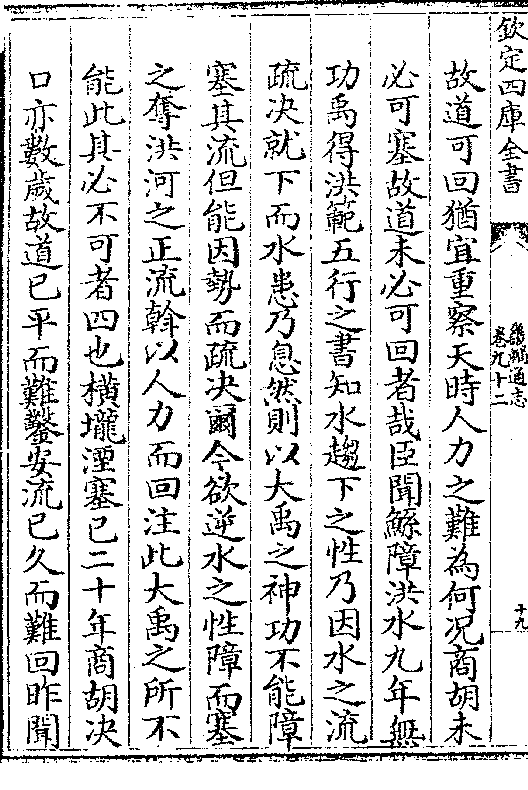 欽定四庫全書
畿輔通志
卷九十二
十九
故道可回猶宜重察天時人力之難為何况商胡未
必可塞故道未必可回者哉臣聞鯀障洪水九年無
功禹得洪範五行之書知水趨下之性乃因水之流
疏决就下而水患乃息然則以大禹之神功不能障
塞其流但能因勢而疏决爾今欲逆水之性障而塞
之奪洪河之正流斡以人力而回注此大禹之所不
能此其必不可者四也横壠湮塞已二十年商胡决
口亦數歲故道已平而難鑿安流已久而難回昨聞